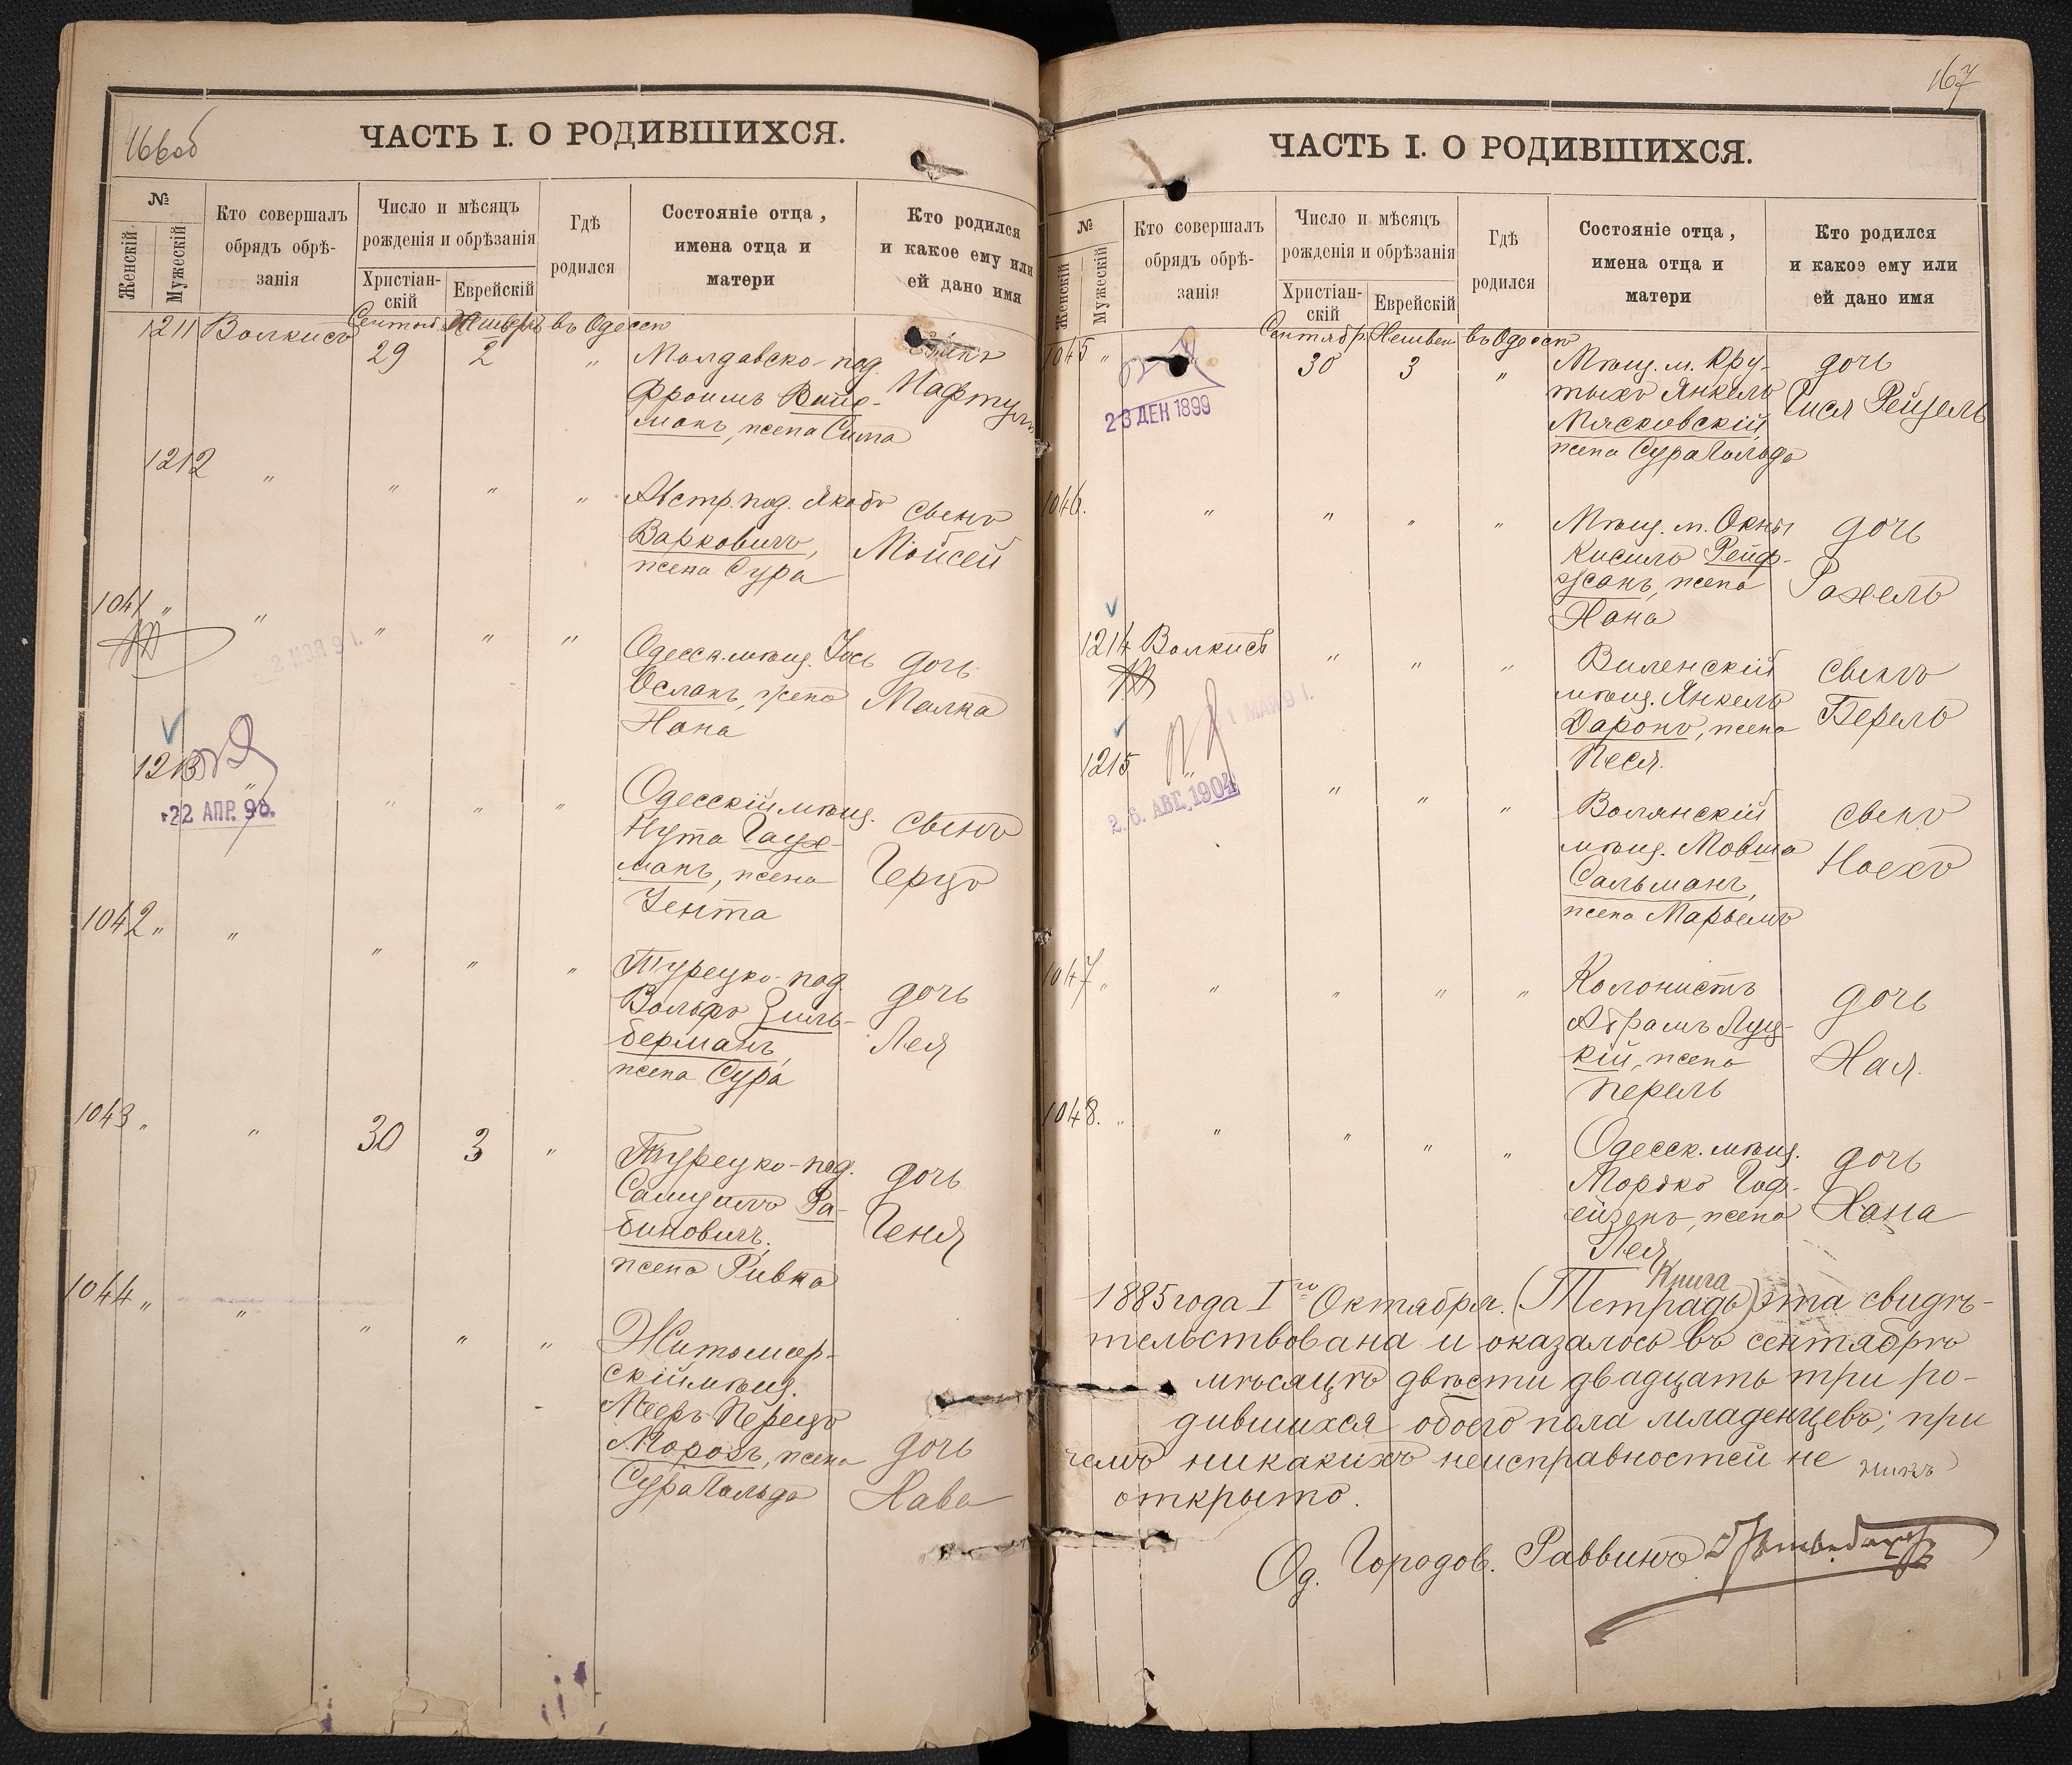 166об
ЧАСТЬ I. О РОДИВШИХСЯ.
№
Женскій
Мужескій
Кто совершалъ
обрядъ обрѣ-
занія
Число и мѣсяцъ
рожденія и обрѣзанія
Христіан-
скій
Еврейскій
Гдѣ
родился
Состояніе отца,
имена отца и
матери
Кто родился
и какое ему или
ей дано имя
1211 Волкисъ
29 2 "
въ Одессѣ
Молдавско-под.
Фроимъ Вайс-
манъ, жена Сима
Нафтулъ
1212 " " " "
Австр. под. Якобъ
Варковичъ,
жена Сура
сынъ
Мойсей
1041 " " " " "
Одесск. мѣщ. Іось
Осланъ, жена
Хана
дочь
Малка
1213 " " " "
22 АПР. 96.
Одесскій мѣщ.
Нута Гаух-
манъ, жена
Зента
сынъ
Герцъ
1042 " " " " "
Турецко-под.
Вольфъ Зиль-
берманъ,
жена Сура
дочь
Лея
1043 " " 30 3 "
Турецко-под.
Самуилъ Ра-
биновичъ,
жена Ривка
дочь
Геня
1044 " " " " "
Житомир-
скій мѣщ.
Мееръ Перецъ
Морозъ, жена
Сура Гольда
дочь
Хава
167
ЧАСТЬ I. О РОДИВШИХСЯ.
№
Женскій
Мужескій
Кто совершалъ
обрядъ обрѣ-
занія
Число и мѣсяцъ
рожденія и обрѣзанія
Христіан-
скій
Еврейскій
Гдѣ
родился
Состояніе отца,
имена отца и
матери
Кто родился
и какое ему или
ей дано имя
Сентябр. Хешвен въ Одессѣ
1045 " 30 3 "
23 ДЕК 1899
Мѣщ. м. Кру-
тыхъ Янкель
Мясковскій,
жена Сура Гольда
дочь
Гися Рейзель
1046. " " " "
Мѣщ. м. Окны
Кисиль Рейф-
манъ, жена
Хана
дочь
Рахель
1214 Волкисъ " " "
1 МАЯ 91.
Виленскій
мѣщ. Янкель
Даронъ, жена
Песя.
сынъ
Берель
1215 " " " "
26. АВГ. 1904
Волянскій
мѣщ. Мовша
Сальманъ,
жена Марьемъ
сынъ
Ноехъ
1047 " " " " "
Колонистъ
Абрамъ Луц-
кій, жена
Перель
дочь
Хая.
1048. " " " " "
Одесск. мѣщ.
Мордко Гоф-
ейзенъ, жена
Лея
дочь
Хана
Книга
1885 года 1го Октября. (Тетрадь) эта свидѣ-
тельствована и оказалось въ сентябрѣ
мѣсяцѣ двѣсти двадцать три ро-
дившихся обоего пола младенцевъ; при
чемъ никакихъ неисправностей не
открыто.
Од. Городов. Раввинъ